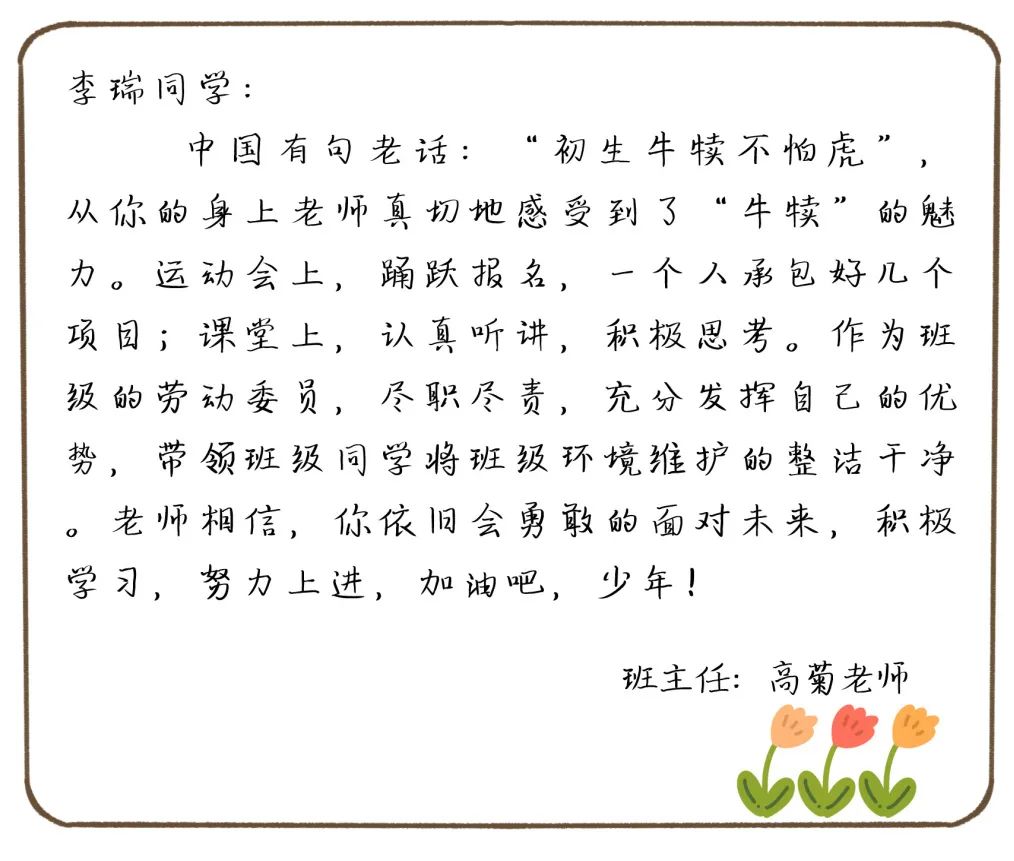 李瑞同学：
中国有句老话：“初生牛犊不怕虎”，
从你的身上老师真切地感受到了“牛犊”的魅
力。运动会上，踊跃报名，一个人承包好几个
项目；课堂上，认真听讲，积极思考。作为班
级的劳动委员，尽职尽责，充分发挥自己的优
势，带领班级同学将班级环境维护的整洁干净
。老师相信，你依旧会勇敢的面对未来，积极
学习，努力上进，加油吧，少年！
班主任：高菊老师